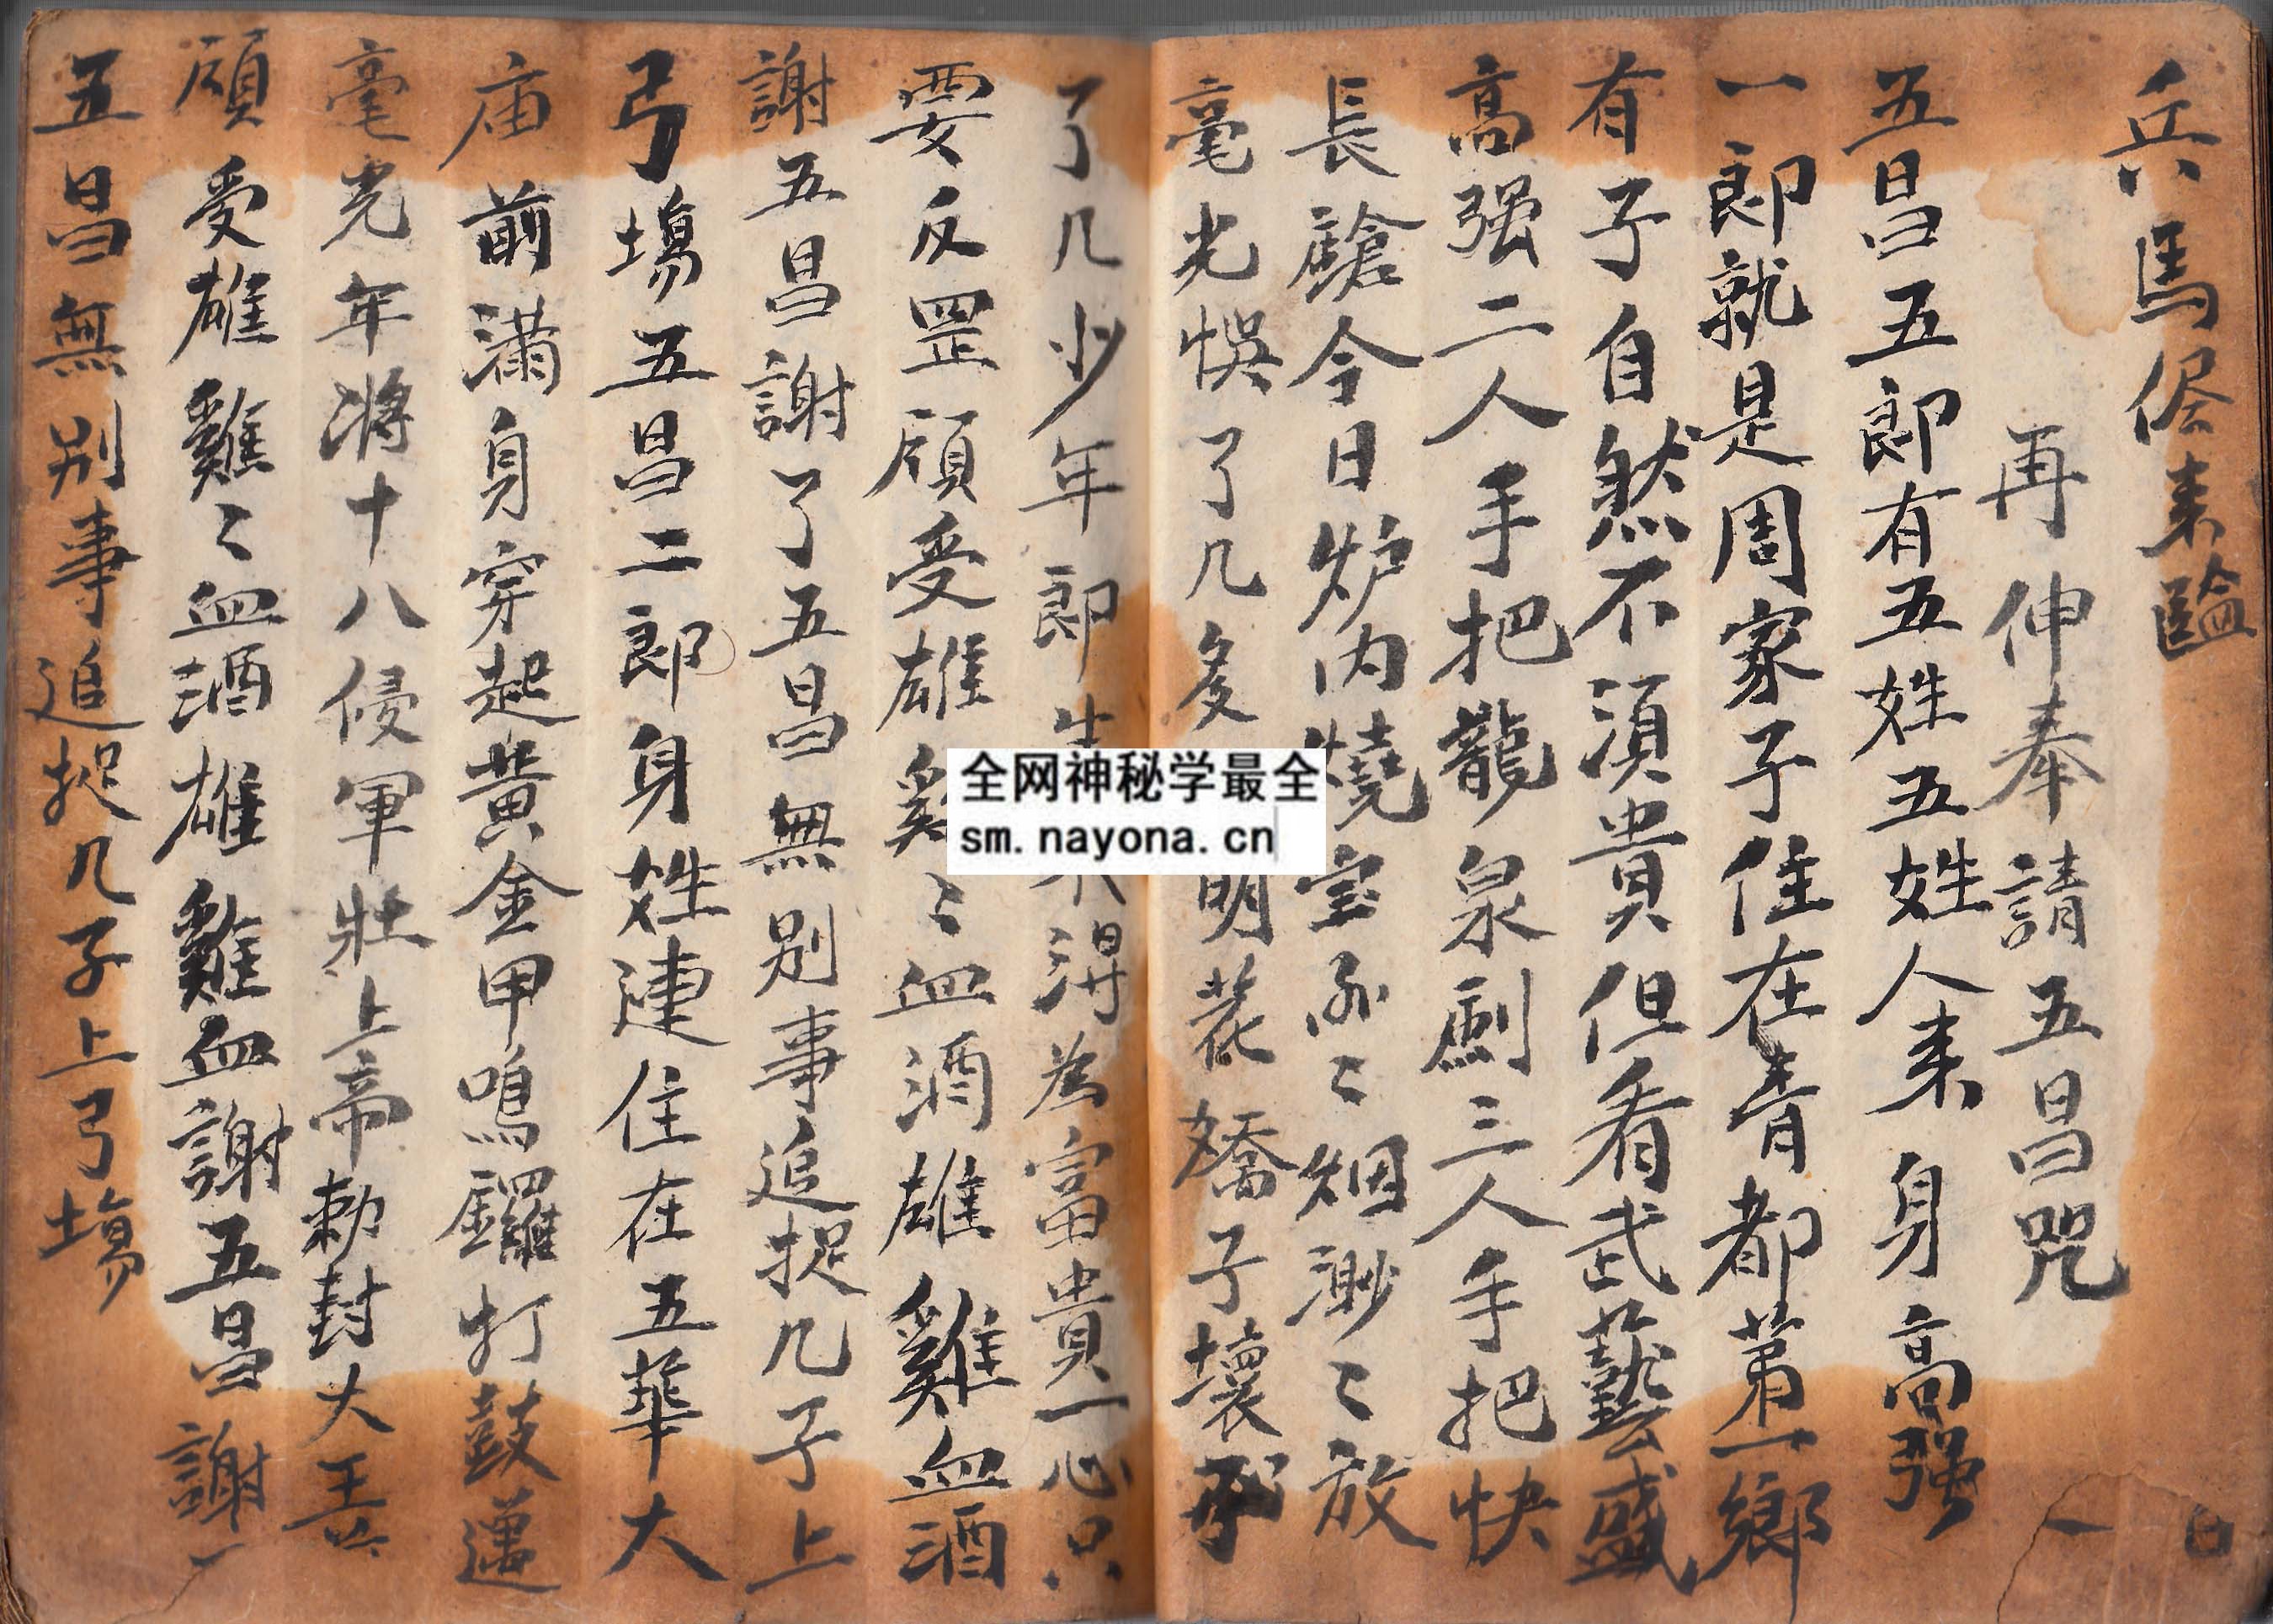 兵馬侭来臨
再伸奉請五昌咒
五昌五郎有五姓五姓人来身高強
一郎就是周家子住在青都第一鄉
有子自然不須貴但看武藝盛
高强二人手把龍泉劍三人手把快
長鎗今日炉内燒宝香〻烟渺〻放
毫光悞了几多明花嬌子壞
了几少年郎得為富貴一心只
要反罡願受雄雞〻血酒雄雞血酒
謝五昌謝了五昌無別事追捉几子上
弓場五昌二郎身姓連住在五華大
庙前满身穿起黄金甲鳴鑼打鼓邁
毫光年將十八侵軍壯上帝勅封大王
願受雄雞〻血酒雄雞血謝五昌謝一
五昌無別事追捉几子上弓場
全网神秘学最全
sm.nayona.cn